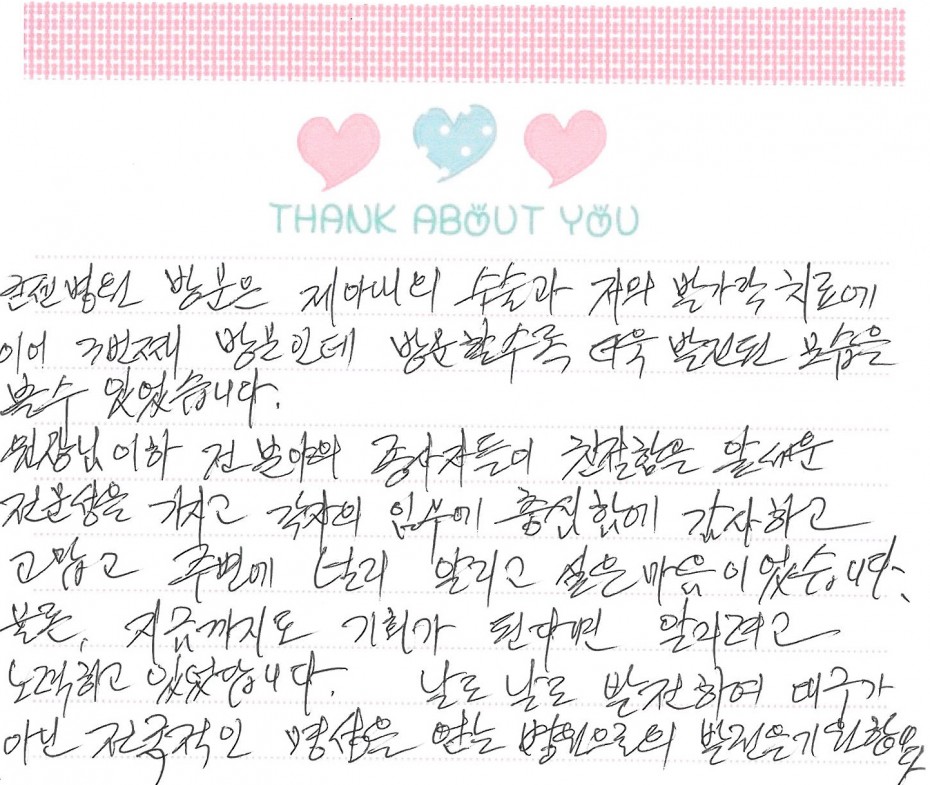 THANK ABOUT YOU
병원 방문은 제아내의 수술과 저의 발가락 치료에
이어 3번째 방문인데 방문할수록 더욱 발전된 모습을
볼수 있었습니다.
원장님 이하 전 분야의 종사자들이 친절함은 말
전문성을 가지고 각자의 임무에 충실함에 감사하고
고맙고 주변에 널리 알리고 싶은 마음이었습니다.
물론, 지금까지도 기회가 된다면 알리려고
노력하고 있었답니다. 날로 날로 발전하여 대구가
아닌 전국적인 명성을 얻는 병원으로의 발전은 기원함